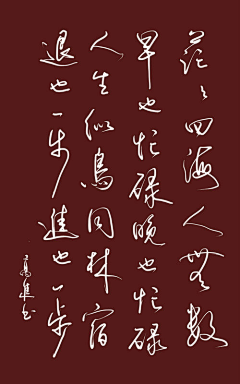 茫々四海人無数
早也忙碌晚也忙碌
人生似鳥同林宿
退也一步進也一步